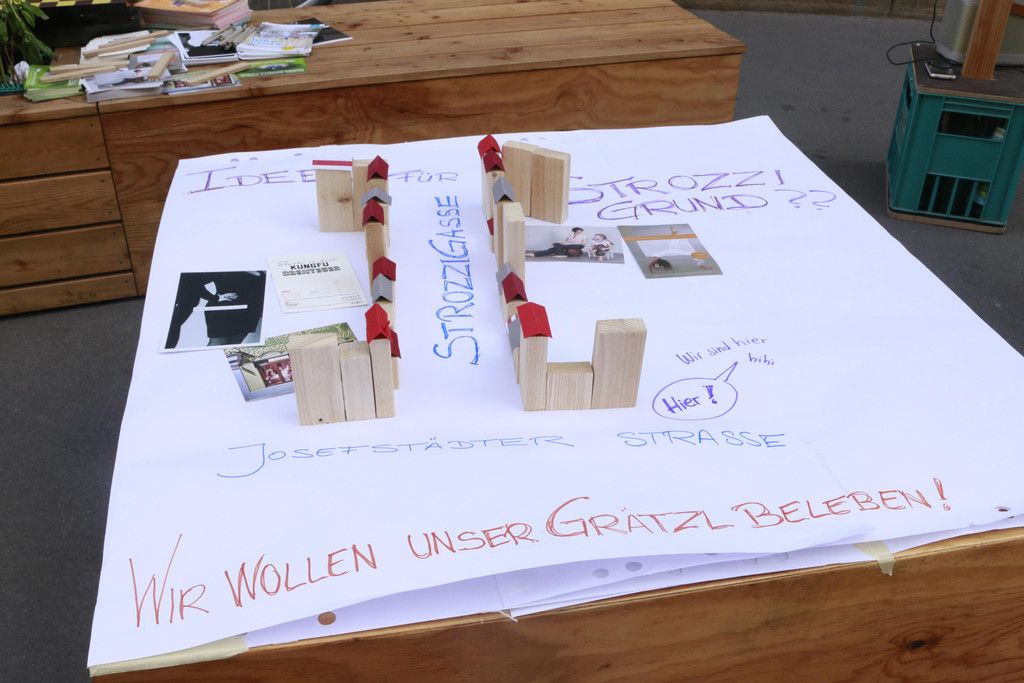 IDEE FÜR STROZZI
GRUND ??
STROZZIGASSE
KUNGFU
Wir sind hier
Hier!
JOSEFSTÄDTER STRASSE
WIR WOLLEN UNSER GRÄTZL BELEBEN!